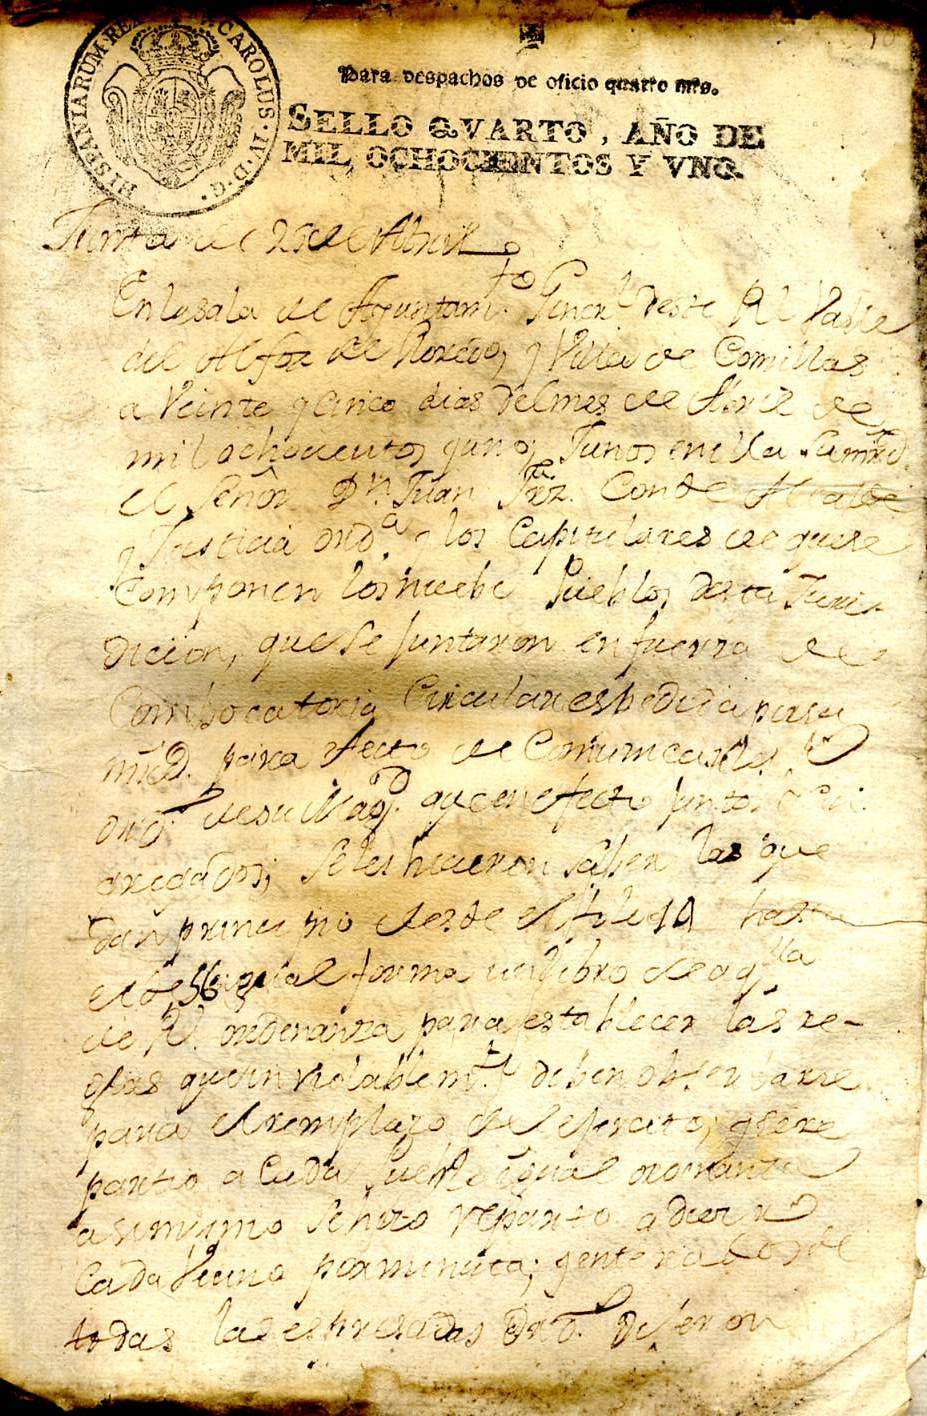 HISPANIARUM REX CAROLUS · IV · D · G ·
Para despachos de oficio quatro mrs.
SELLO QVARTO, AÑO DE
MIL OCHOCIENTOS Y VNO.
Junta de 25 de Abril
En la sala de Ayuntamto Generl deste Rl Valle
del Alfoz de Lloredo, y Villa de Comillas
a Veinte y cinco dias del mes de Abril de
mil ochocientos y uno, Juntos en ella Su mrd
el Señor Dn Juan Frnz. Conde Alcalde
y Justicia ordª. los Capitulares de que se
Componen los nuebe Pueblos desta Juris-
diccion, que se juntaron en fuerza de
Combocatoria Circular espedida por su
mrd. para efecto de Comunicarles
ord. de su Magd. que en efecto juntos y con
gregados, se les hicieron saber las que
dan principio desde el folio 19 hasta
el de 56 qual forma un libro de aqlla
de Rl. ordenanza para establecer las re-
glas que inviolablemte deben observarse
para el remplazo del ejercito, y se re
partio a Cada Pueblo igual
asimismo se hizo reparto a diez
Cada Vecino por minuta; y enterados de
todas las espresadas Ord. dijeron